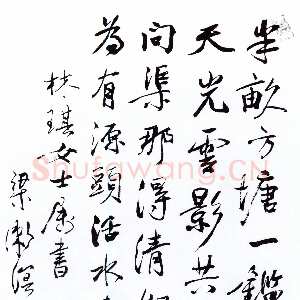 半畝方塘一鑑
天光雲影共
問渠那得清
為有源頭活水
林琪女士属書
梁漱溟
Shufawang.CN